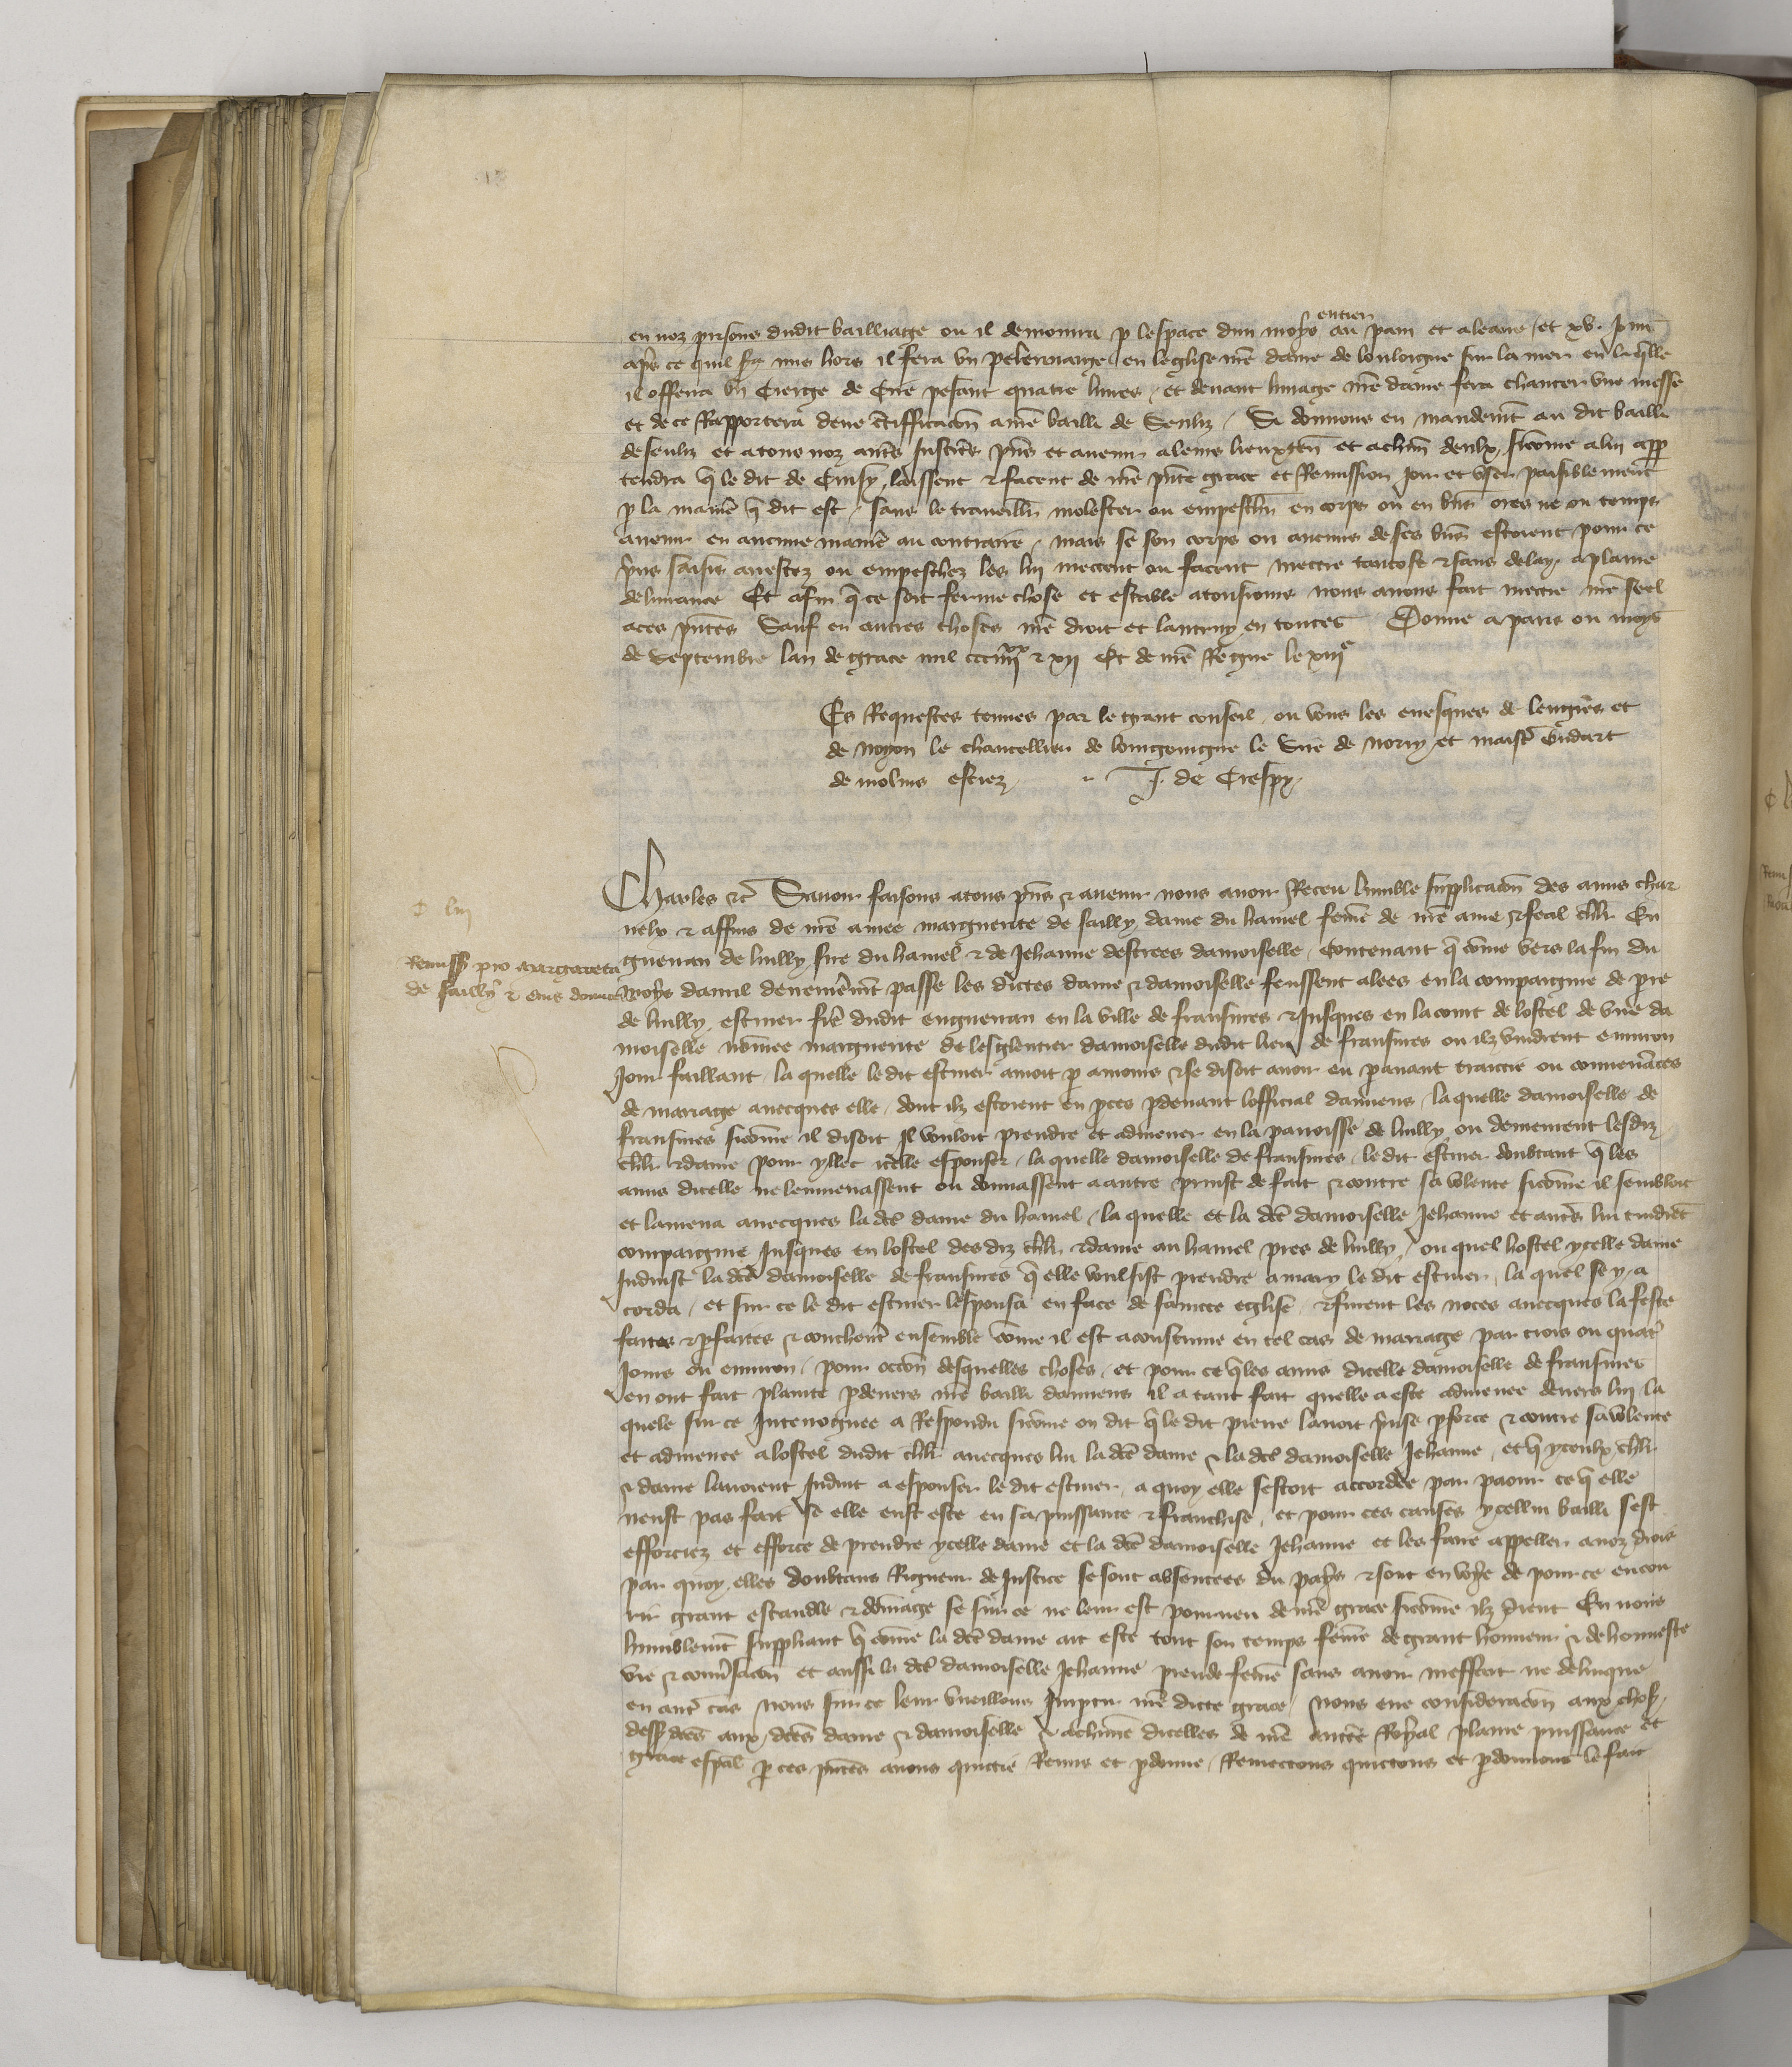 en noz prisons dudit bailliage ou il demourra p lespace dun moys entier au pain et a leaue et xv. jours
apres ce quil sera mis hors il fera un pelerinaige en leglise nre dame de bouloigne sur la mer en laqlle
il offerra un cierge de cire pesant quatre livres, et devant limage nre dame fera chanter une messe
et de ce rapportera deue certifficacion a nre bailli de Senliz / Si donnons en mandemt au dit bailli
de senliz et a tous noz autres justiciers pns et avenir a leurs lieuxten et a chun deulx, sicome a lui app
tendra q le dit de laissent & facent de nre pnte grace et Remission joir et user paisiblement
p la maniere q dit est, sans le travaillier molester ou empeschier en corps ou en biens ores ne ou temps
avenir en aucune maniere au contraire, mais se son corps ou aucuns de ses biens estoient pour ce
prins saisis arrestez ou empeschez les lui mettent ou facent mettre tantost & sans delay a plaine
delivrance Et afin q ce soit ferme chose et estable a tousjours nous avons fait mettre nre seel
a ces pntes Sauf en autres choses nre droit et lautruy en toutes Donne a paris ou moys
de Septembre lan de grace mil ccciiiixx & xii Et de nre Regne le xiiie
Es Requestes tenues par le grant conseil, ou vous les evesques de lengres et
de noyon le chancellier de bourgoingne le vire de et maistre oudart
de molins estiez J. de Crespy
Charles &c Savoir faisons a tous pns & avenir nous avoir Receu humble supplicacion des amis char
nelx & affins de nre amee marguerite de sailly dame du hamel feme de nre ame & feal chlr En
guerran de luilly sire du hamel & de Jehanne destrees damoiselle, contenant q come vers la fin du
moys davril derrenieremt passe les dictes dame & damoiselle feussent alees en la compaignie de pre
de luilly, escuier frere dudit enguerran en la ville de fransures & jusques en la court de lostel de une da
moiselle nomee marguerite de lesglentier damoiselle dudit lieu de fransures ou ilz vindrent environ
jour faillant, la quelle le dit escuier amoit p amours & se disoit avoir eu paravant traictie ou convenances
de mariage avecques elle, dont ilz estoient en pces pdevant lofficial damiens, la quelle damoiselle de
fransures sicome il disoit Il vouloit prendre et admener en la parroisse de luilly ou demeurent lesdiz
chlr & dame pour yllec icelle espouser, la quelle damoiselle de fransures, le dit escuier doubtant q les
amis dicelle ne lemmenassent ou donnassent a autre prinst de fait & contre sa volente sicome il sembloit
et lamena avecques la dce dame du hamel, la quelle et la dce damoiselle Jehanne et autres lui tindrent
compaignie jusques en lostel des diz chlr & dame au hamel pres de luilly, ou quel hostel ycelle dame
Induist la dce damoiselle de fransures q elle voulsist prendre a mary le dit escuier, la quel se y a
corda, et sur ce le dit escuier lespousa en face de saincte eglise, & furent les noces avecques la feste
faites & pfaites & coucherent ensemble come il est acoustume en tel cas de mariage par trois ou quatre
jours ou environ, pour occon desquelles choses, et pour ce q les amis dicelle damoiselle de fransures
en ont fait plainte pdevers nre bailli damiens il a tant fait quelle a este admenee devers lui la
quele sur ce Interroguee a Respondu sicome on dit q le dit pierre lavoit prinse pforce & contre sa volente
et admenee a lostel dudit chlr avecques lui la dce dame & la dce damoiselle Jehanne, et q yceulx chlr
& dame lavoient Induit a espouser le dit escuier, a quoy elle sestoit accordee par paour ce q elle
neust pas fait se elle eust este en sa puissance & franchise, et pour ces causes ycellui bailli sest
efforciez et efforce de prendre ycelle dame et la dce damoiselle Jehanne et les faire appeller a noz drois
par quoy, elles doubtans Rigueur de Justice se sont absentees du pays & sont en voye de pour ce encou
rir grant escandle & domage se sur ce ne leur est pourveu de nre grace sicome ilz dient En nous
humblemt suppliant q come la dce dame ait este tout son temps feme de grant honneur & de honneste
vie & conversacion et aussi la dce damoiselle Jehanne preude feme sans avoir meffait ne delinque
en autre cas nous sur ce leur vueillons Impartir nre dicte grace, Nous eue consideracion aux choses
dessus dces aux dces dame & damoiselle & a chune dicelles de nre aucte Royal plaine puissance et
grace espal p ces pntes avons quictie Remis et pdonne, Remettons quictons et pdonnons le fait
Remiss pro margareta
de sailly &